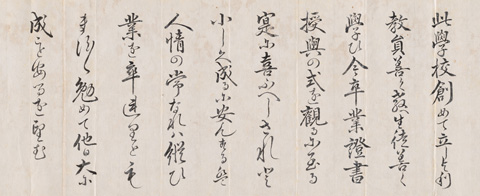 此學校創めて立しより
教員善く教へ生徒善く
學ひ今卒業證書
授與の式を觀るに至る
寔に喜ふへしされと
小しく成るに安んするは
人情の常なれハ縦ひ
業を卒るとも
ますく勉めて他日大に
成るあるを望む